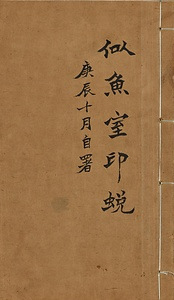 似魚室印蜕
庚辰十月自署